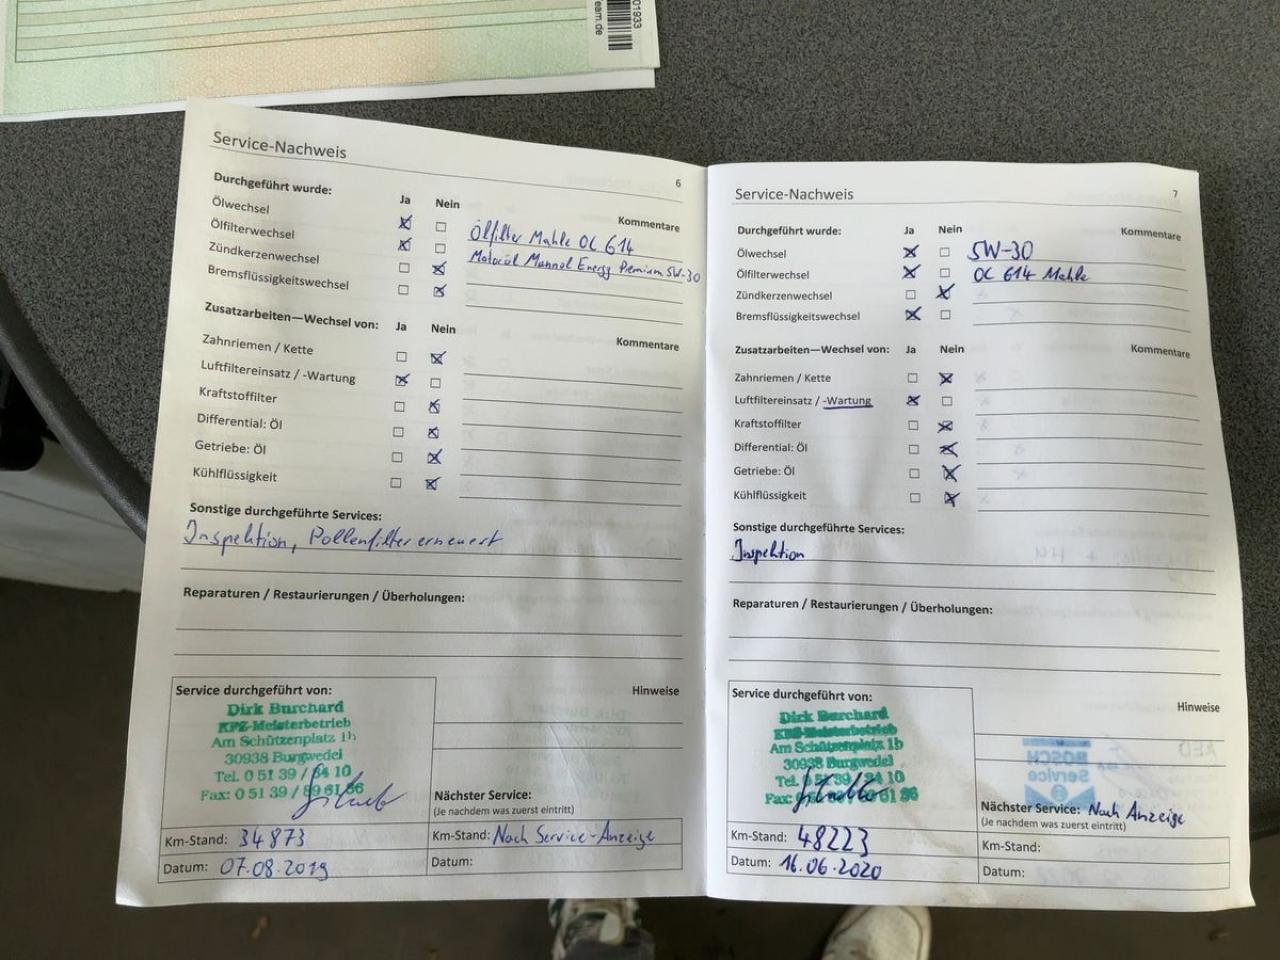 01933
eam.de
Service-Nachweis
6
Durchgeführt wurde: Ja Nein Kommentare
Ölwechsel
Ölfilterwechsel Ölfilter Mahle OC 614
Zündkerzenwechsel Motoröl Mannol Energy Premium 5W-30
Bremsflüssigkeitswechsel
Zusatzarbeiten—Wechsel von: Ja Nein Kommentare
Zahnriemen / Kette
Luftfiltereinsatz / -Wartung
Kraftstoffilter
Differential: Öl
Getriebe: Öl
Kühlflüssigkeit
Sonstige durchgeführte Services:
Inspektion, Pollenfilter erneuert
Reparaturen / Restaurierungen / Überholungen:
Service durchgeführt von: Hinweise
Dirk Burchard
KFZ-Meisterbetrieb
Am Schützenplatz 1b
30938 Burgwedel
Tel. 0 51 39 / 84 10
Fax: 0 51 39 / 89 61 86
Nächster Service:
(Je nachdem was zuerst eintritt)
Km-Stand: 34873 Km-Stand: Nach Service-Anzeige
Datum: 07.08.2019 Datum:
Service-Nachweis
7
Durchgeführt wurde: Ja Nein Kommentare
Ölwechsel 5W-30
Ölfilterwechsel OC 614 Mahle
Zündkerzenwechsel
Bremsflüssigkeitswechsel
Zusatzarbeiten—Wechsel von: Ja Nein Kommentare
Zahnriemen / Kette
Luftfiltereinsatz / -Wartung
Kraftstoffilter
Differential: Öl
Getriebe: Öl
Kühlflüssigkeit
Sonstige durchgeführte Services:
Inspektion
Reparaturen / Restaurierungen / Überholungen:
Service durchgeführt von: Hinweise
Dirk Burchard
KFZ-Meisterbetrieb
Am Schützenplatz 1b
30938 Burgwedel
Tel. 0 51 39 / 84 10
Fax: 0 51 39 / 89 61 86
BOSCH
Service
Nächster Service: Nach Anzeige
(Je nachdem was zuerst eintritt)
Km-Stand: 48223 Km-Stand:
Datum: 16.06.2020 Datum: